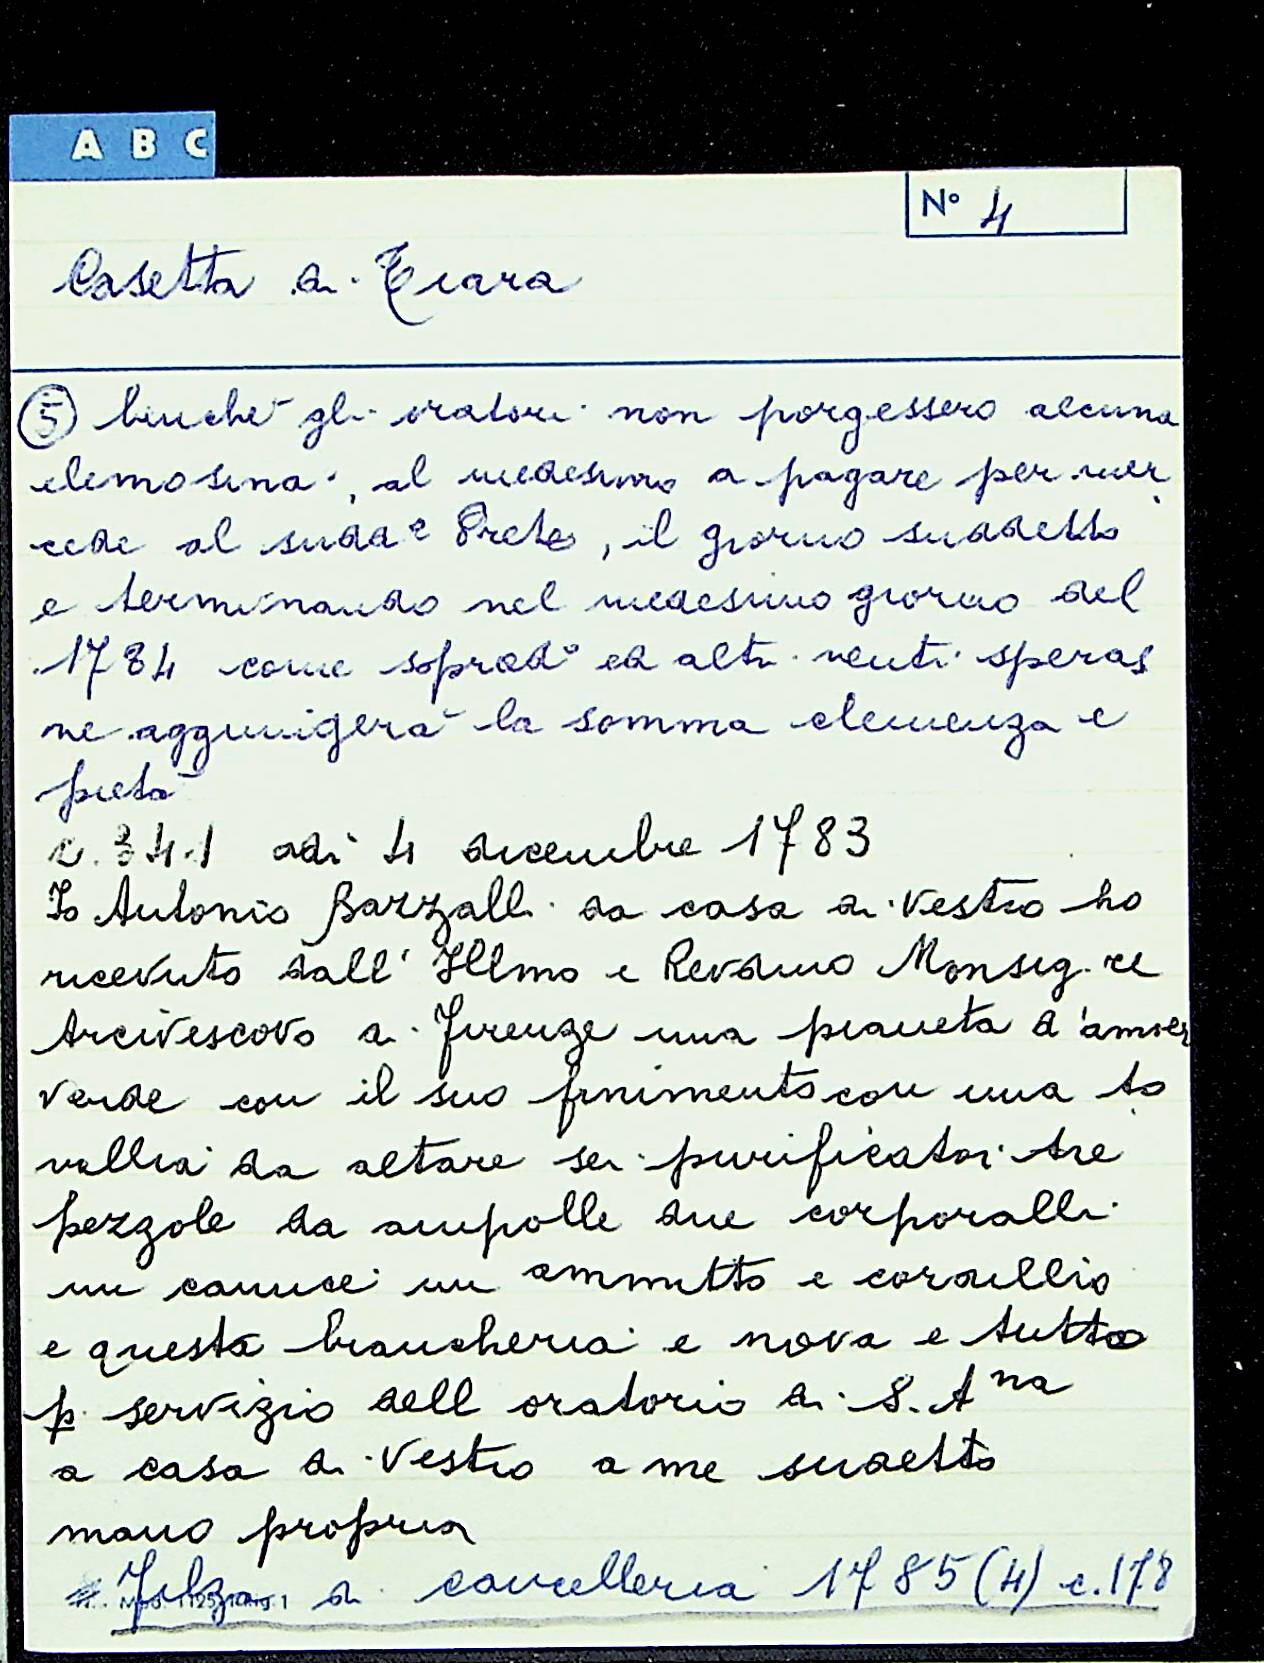 A B C
N° 4
Casetta di Tiara
⑤ benché gli oratori non porgessero alcuna
elemosina, al medesimo a pagare per mer
cede al sudd e Prete, il giorno suddetto
e terminando nel medesimo giorno del
1784 come soprad° ed altri venti speras
ne aggiungerà la somma clemenza e
pietà
c. 341 adi 4 dicembre 1783
Io Antonio Barzalli da casa di Vestro ho
ricevuto dall' Illmo e Revdmo Monsig.re
Arcivescovo di Firenze una pianeta d'amoer
verde con il suo finimento con una to
vallia da altare sei purificatoi tre
pezzole da ampolle due corporalli
un camice un ammitto e cordellio
e questa biancheria e nova e tutto
p. servizio dell oratorio di S. Ana
a casa di Vestro a me sudetto
mano propria
Filza di cancelleria 1785 (4) c.178